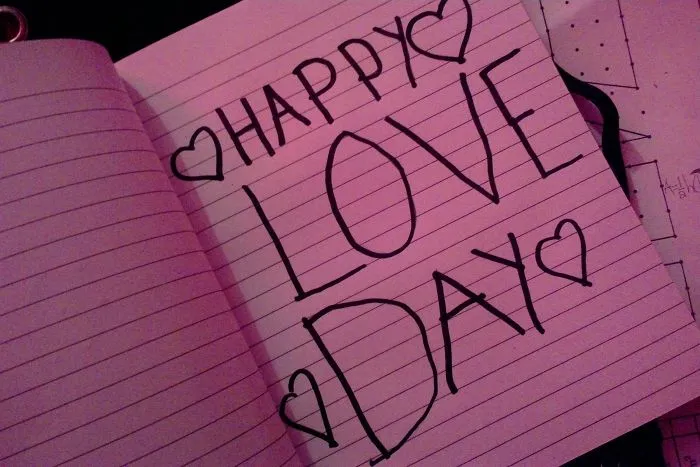 ♡HAPPY♡
LOVE
♡DAY♡